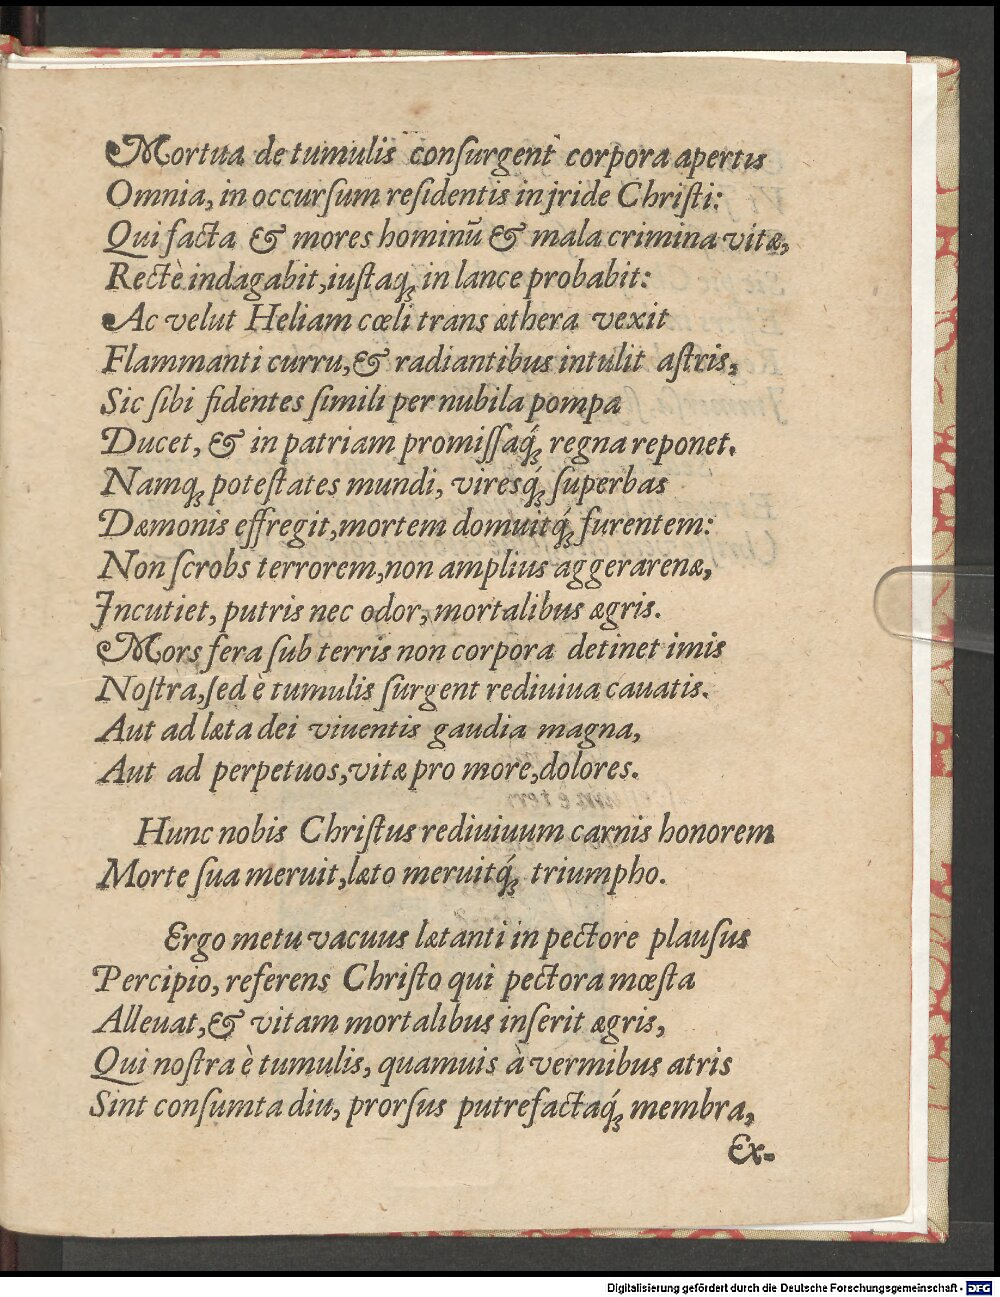 Mortua de tumulis conſurgent corpora apertis
Omnia, in occurſum reſidentis in jride Chriſti:
Qui facta & mores hominū & mala crimina vitæ,
Rectè indagabit, iuſtaq́; in lance probabit:
Ac velut Heliam cœli trans æthera vexit
Flammanti curru, & radiantibus intulit aſtris,
Sic ſibi fidentes ſimili per nubila pompa
Ducet, & in patriam promiſſaq́; regna reponet.
Namq; poteſtates mundi, viresq́; ſuperbas
Dæmonis effregit, mortem domuitq́; furentem:
Non ſcrobs terrorem, non amplius agger arenæ,
Jncutiet, putris nec odor, mortalibus ægris.
Mors fera ſub terris non corpora detinet imis
Noſtra, ſed è tumulis ſurgent rediuiua cauatis.
Aut ad læta dei viuentis gaudia magna,
Aut ad perpetuos, vitæ pro more, dolores.
Hunc nobis Chriſtus rediuiuum carnis honorem
Morte ſua meruit, læto meruitq́; triumpho.
Ergo metu vacuus lætanti in pectore plauſus
Percipio, referens Chriſto qui pectora mœſta
Alleuat, & vitam mortalibus inſerit ægris,
Qui noſtra è tumulis, quamuis à vermibus atris
Sint conſumta diu, prorſus putrefactaq́; membra,
Ex-
Digitalisierung gefördert durch die Deutsche Forschungsgemeinschaft - DFG